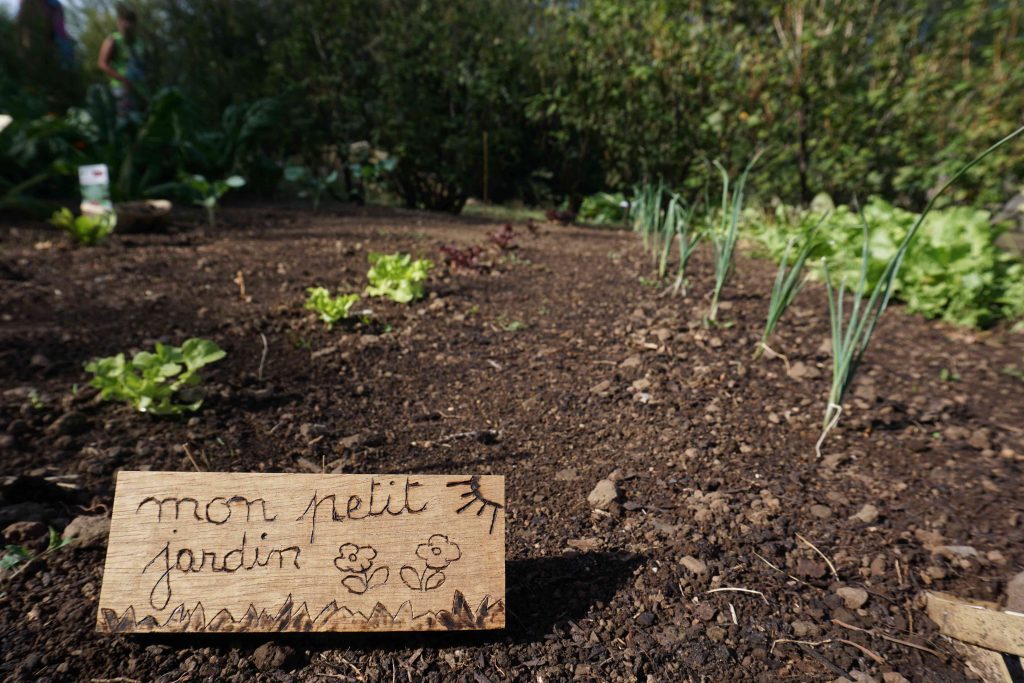 mon petit
jardin